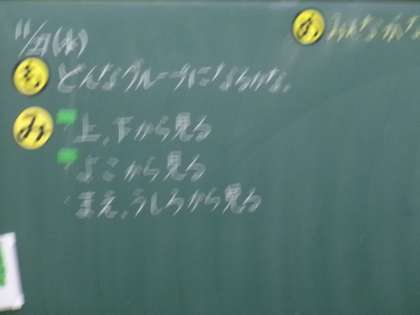 11/27(木)
も どんなグループになるかな。
み ・上、下から見る
・よこから見る
・まえ、うしろから見る
お みんなかな